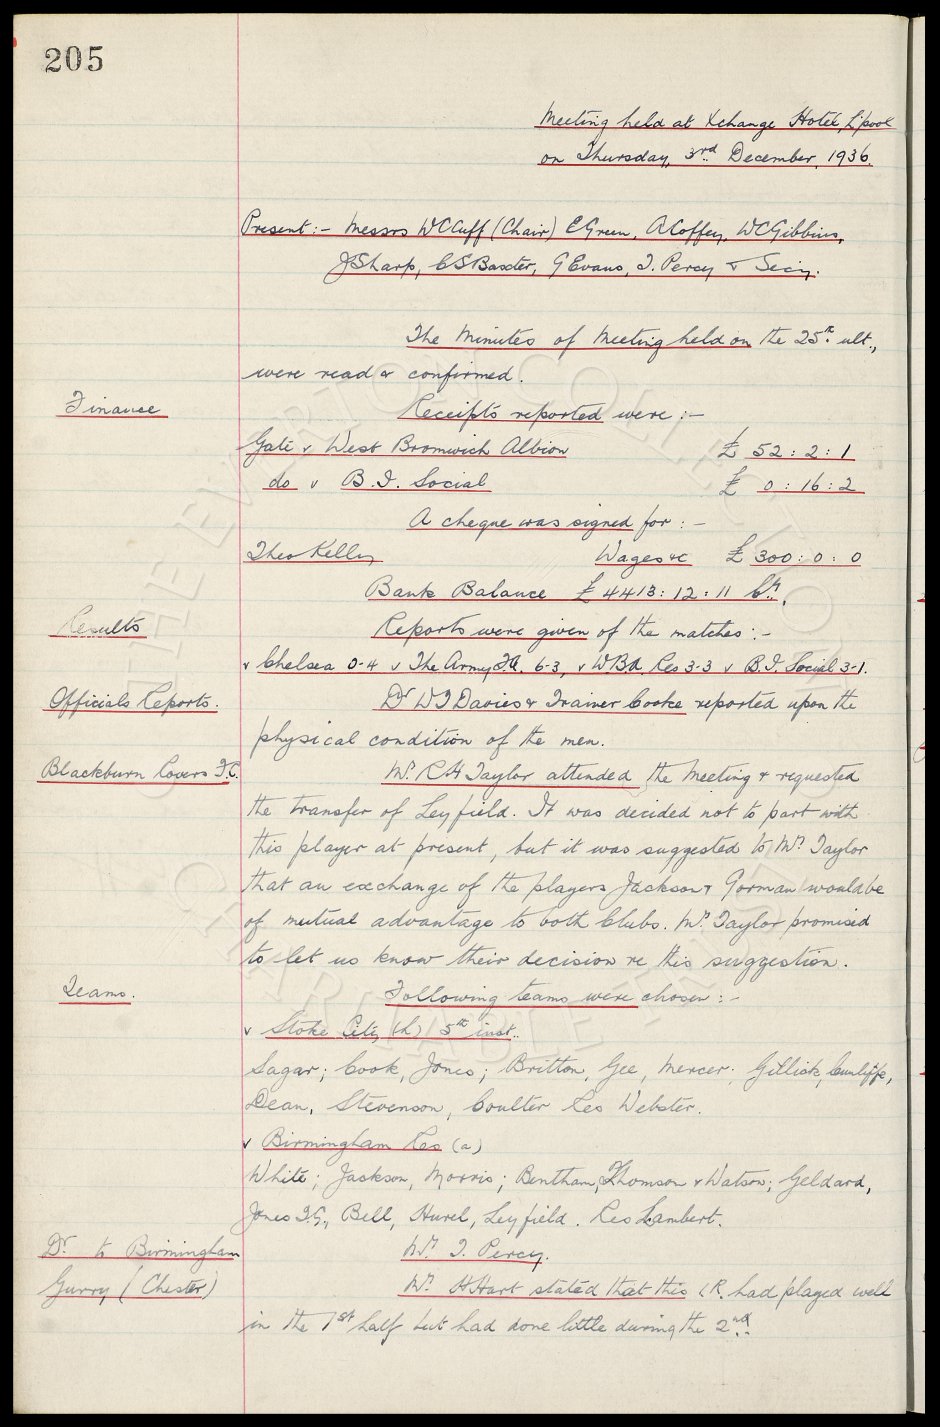 205
Meeting held at Xchange Hotel, L'pool
on Thursday, 3rd December, 1936.
Present:- Messrs WCCuff (Chair) EGreen, ACoffey, WCGibbins,
JSharp, CSBaxter, GEvans, T. Percy & Secy.
The Minutes of Meeting held on the 25th ult.,
were read & confirmed.
Finance Receipts reported were :-
Gate v West Bromwich Albion £ 52 : 2 : 1
do v B.I. Social £ 0 : 16 : 2
A cheque was signed for :-
Theo Kelly Wages &c £ 300 : 0 : 0
Bank Balance £4413 : 12 : 11 Cr.
Results Reports were given of the matches :-
v Chelsea 0-4 v The Army FA. 6-3, v W.B.A. Res 3-3 v B.I. Social 3-1.
Officials Reports. Dr WJDavies & Trainer Cooke reported upon the
physical condition of the men.
Blackburn Rovers F.C. Mr. RHTaylor attended the Meeting & requested
the transfer of Leyfield. It was decided not to part with
this player at present, but it was suggested to Mr. Taylor
that an exchange of the players Jackson & Gorman would be
of mutual advantage to both Clubs. Mr. Taylor promised
to let us know their decision re this suggestion.
Teams. Following teams were chosen :-
v Stoke City (h) 5th inst.
Sagar; Cook, Jones; Britton, Gee, Mercer; Gillick, Cunliffe,
Dean, Stevenson, Coulter Res Webster.
v Birmingham Res (a)
White; Jackson, Morris; Bentham, Thomson & Watson; Geldard,
Jones T.G., Bell, Hurel, Leyfield. Res Lambert.
Dr. to Birmingham Mr. T. Percy.
Gurry (Chester) Mr. HHart stated that this I.R. had played well
in the 1st half but had done little during the 2nd.
THE EVERTON COLLECTION
CHARITABLE TRUST